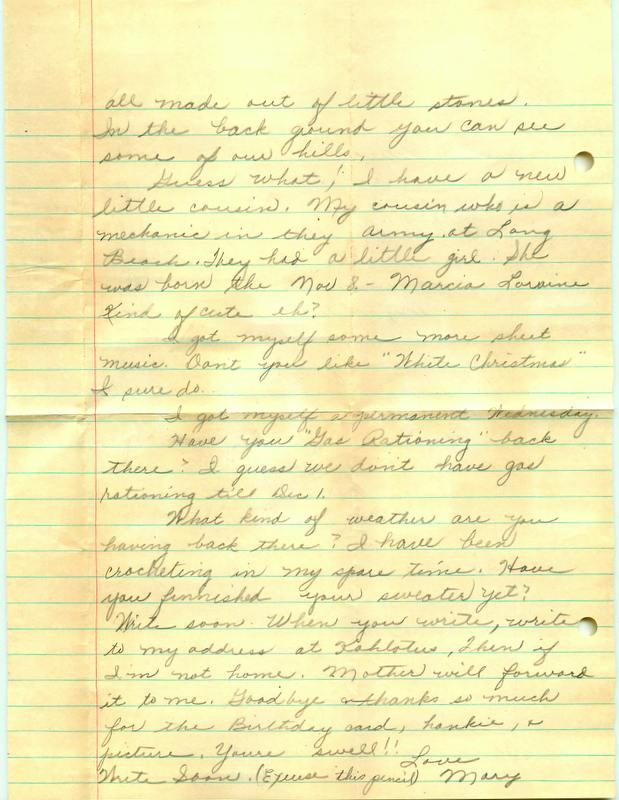 all made out of little stones.
In the back ground you can see
some of our hills.
Guess what! I have a new
little cousin. My cousin who is a
mechanic in they army. at Long
Beach. They had a little girl. She
was born the Nov 8 - Marcia Loraine
Kind of cute eh?
I got myself some more sheet
music. Dont you like "White Christmas"
I sure do.
I got myself a permanent Wednesday.
Have you "Gas Rationing" back
there? I guess we don't have gas
rationing till Dec 1.
What kind of weather are you
having back there? I have been
crocheting in my spare time. Have
you finnished your sweater yet?
Write soon. When you write, write
to my address at Kahlotus, Then if
I'm not home. Mother will forward
it to me. Goodbye thanks so much
for the Birthday card, hankie, &
picture. Youre swell!!
Love
Write Soon. (Excuse this pencil) Mary